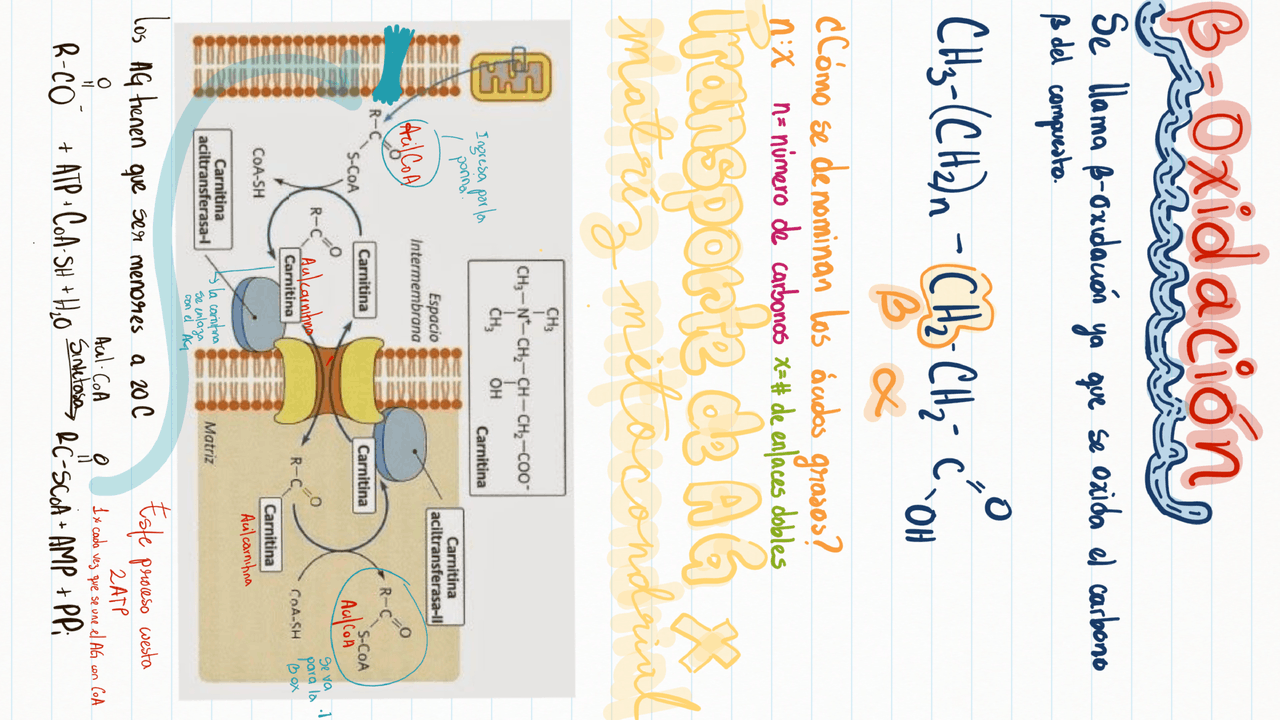 β-Oxidación
Se llama β-oxidación ya que se oxida el carbono
β del compuesto.
CH3-(CH2)n - CH2 - CH2 - C=O
OH
β α
¿Cómo se denominan los ácidos grasos?
n:x n=número de carbonos x=# de enlaces dobles
Transporte de AG *
matriz mitocondrial
CH₃
CH₃—N⁺—CH₂—CH—CH₂—COO⁻
CH₃ OH
Carnitina
Ingresa por la
porina.
Acil CoA
R—C=O
S-CoA
CoA-SH
Espacio
Intermembrana
Carnitina
R—C=O
Carnitina
Acilcarnitina
Carnitina
aciltransferasa-I
la carnitina
se enlaza
con el AG
Carnitina
aciltransferasa-II
Carnitina
R—C=O
Carnitina
Acilcarnitina
CoA-SH
R—C=O
S-CoA
Acil CoA
Se va
para la
β ox
Matriz
los AG tienen que ser menores a 20 C
Este proceso cuesta
2ATP
1x cada vez que se une el AG con CoA
O
R-CO⁻ + ATP + CoA-SH + H₂O
Acil-CoA
Sintetasa
O
RC-SCoA + AMP + PPi